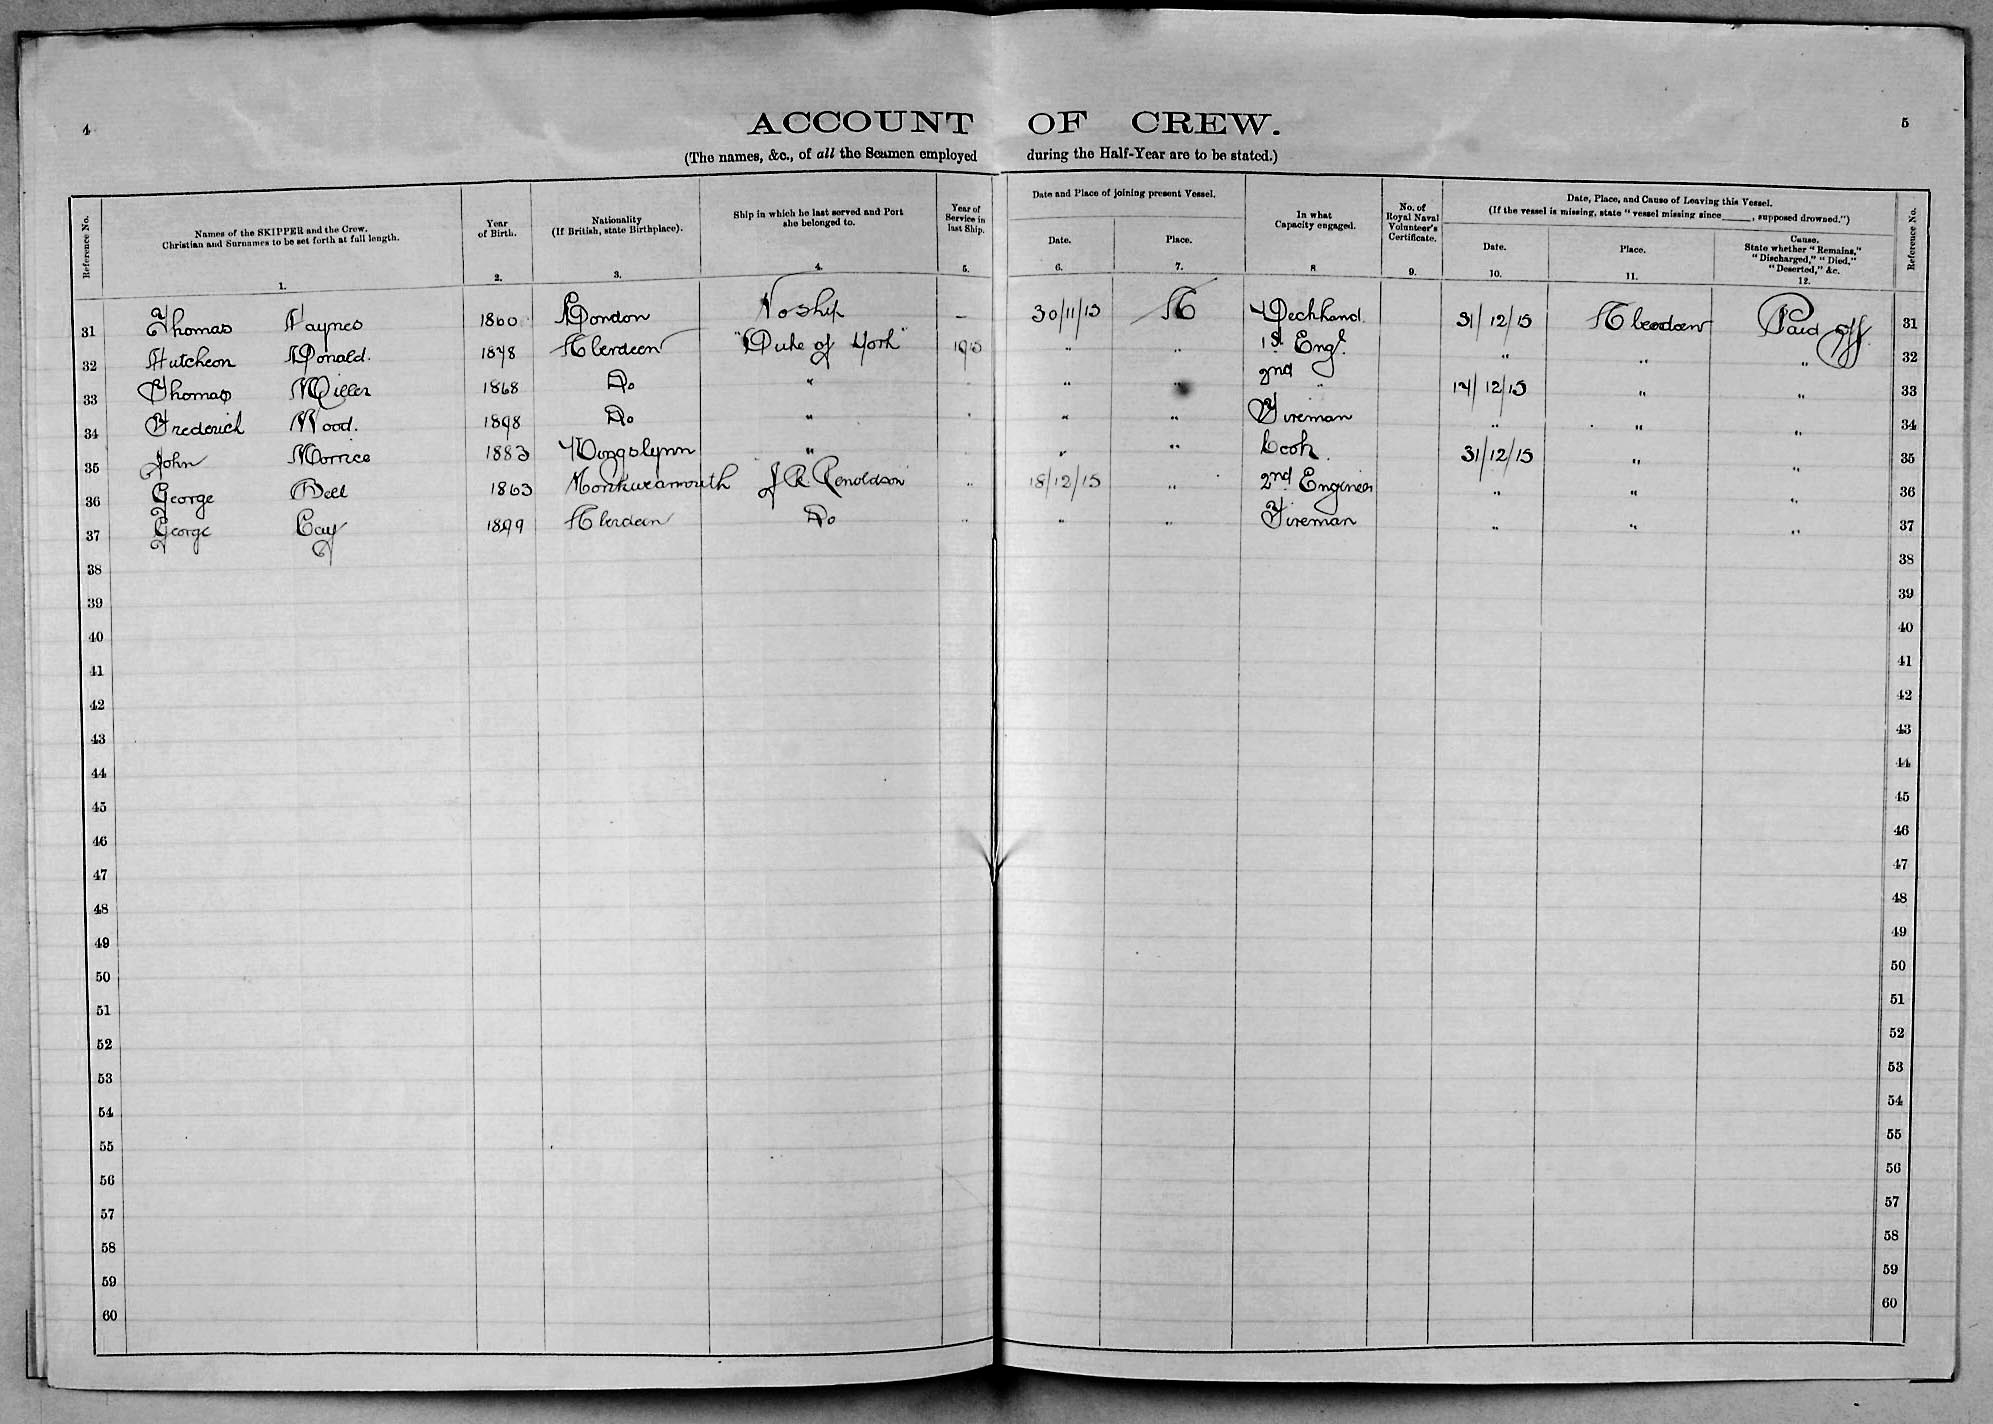 4
5
ACCOUNT OF CREW.
(The names, &c., of all the Seamen employed during the Half-Year are to be stated.)
Reference No.
Names of the SKIPPER and the Crew.
Christian and Surnames to be set forth at full length.
1.
Year
of Birth.
2.
Nationality
(If British, state Birthplace).
3.
Ship in which he last served and Port
she belonged to.
4.
Year of
Service in
last Ship.
5.
Date and Place of joining present Vessel.
Date.
6.
Place.
7.
In what
Capacity engaged.
8
No. of
Royal Naval
Volunteer's
Certificate.
9.
Date, Place, and Cause of Leaving this Vessel.
(If the vessel is missing, state "vessel missing since____, supposed drowned.")
Date.
10.
Place.
11.
Cause.
State whether "Remains,"
"Discharged," "Died,"
"Deserted," &c.
12.
Reference No.
31 Thomas Haynes 1860 London No ship — 30/11/15 A Deckhand. 31/12/15 Aberdeen Paid off 31
32 Hutcheon Donald. 1878 Aberdeen "Duke of York" 1915 " " 1st Engr. " " " 32
33 Thomas Miller 1868 Do " " " " 2nd " 14/12/15 " " 33
34 Frederick Wood. 1898 Do " " " " Fireman " " " 34
35 John Morrice 1883 Kongslynn " " " " Cook. 31/12/15 " " 35
36 George Bell 1863 Monkwearmouth J R Renoldson " 18/12/15 " 2nd Engineer " " " 36
37 George Cay 1899 Aberdeen Do " " " Fireman " " " 37
38 38
39 39
40 40
41 41
42 42
43 43
44 44
45 45
46 46
47 47
48 48
49 49
50 50
51 51
52 52
53 53
54 54
55 55
56 56
57 57
58 58
59 59
60 60